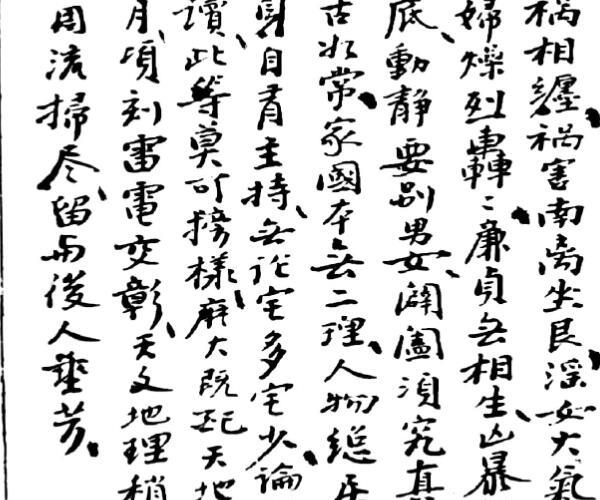 祸相纏、祸害南离坐艮、滛女大氣
婦燥烈轟〻、廉貞无相生、凶暴
底、動靜要别男女、闢闔須究真
古如常、家國本無二理、人物總
身自有主持、无论宅多宅少、論
讀、此等莫可榜樣、大既配天地
月、頃刻雷電交彰、天文地理稍
周流掃尽、留与後人垂芳、